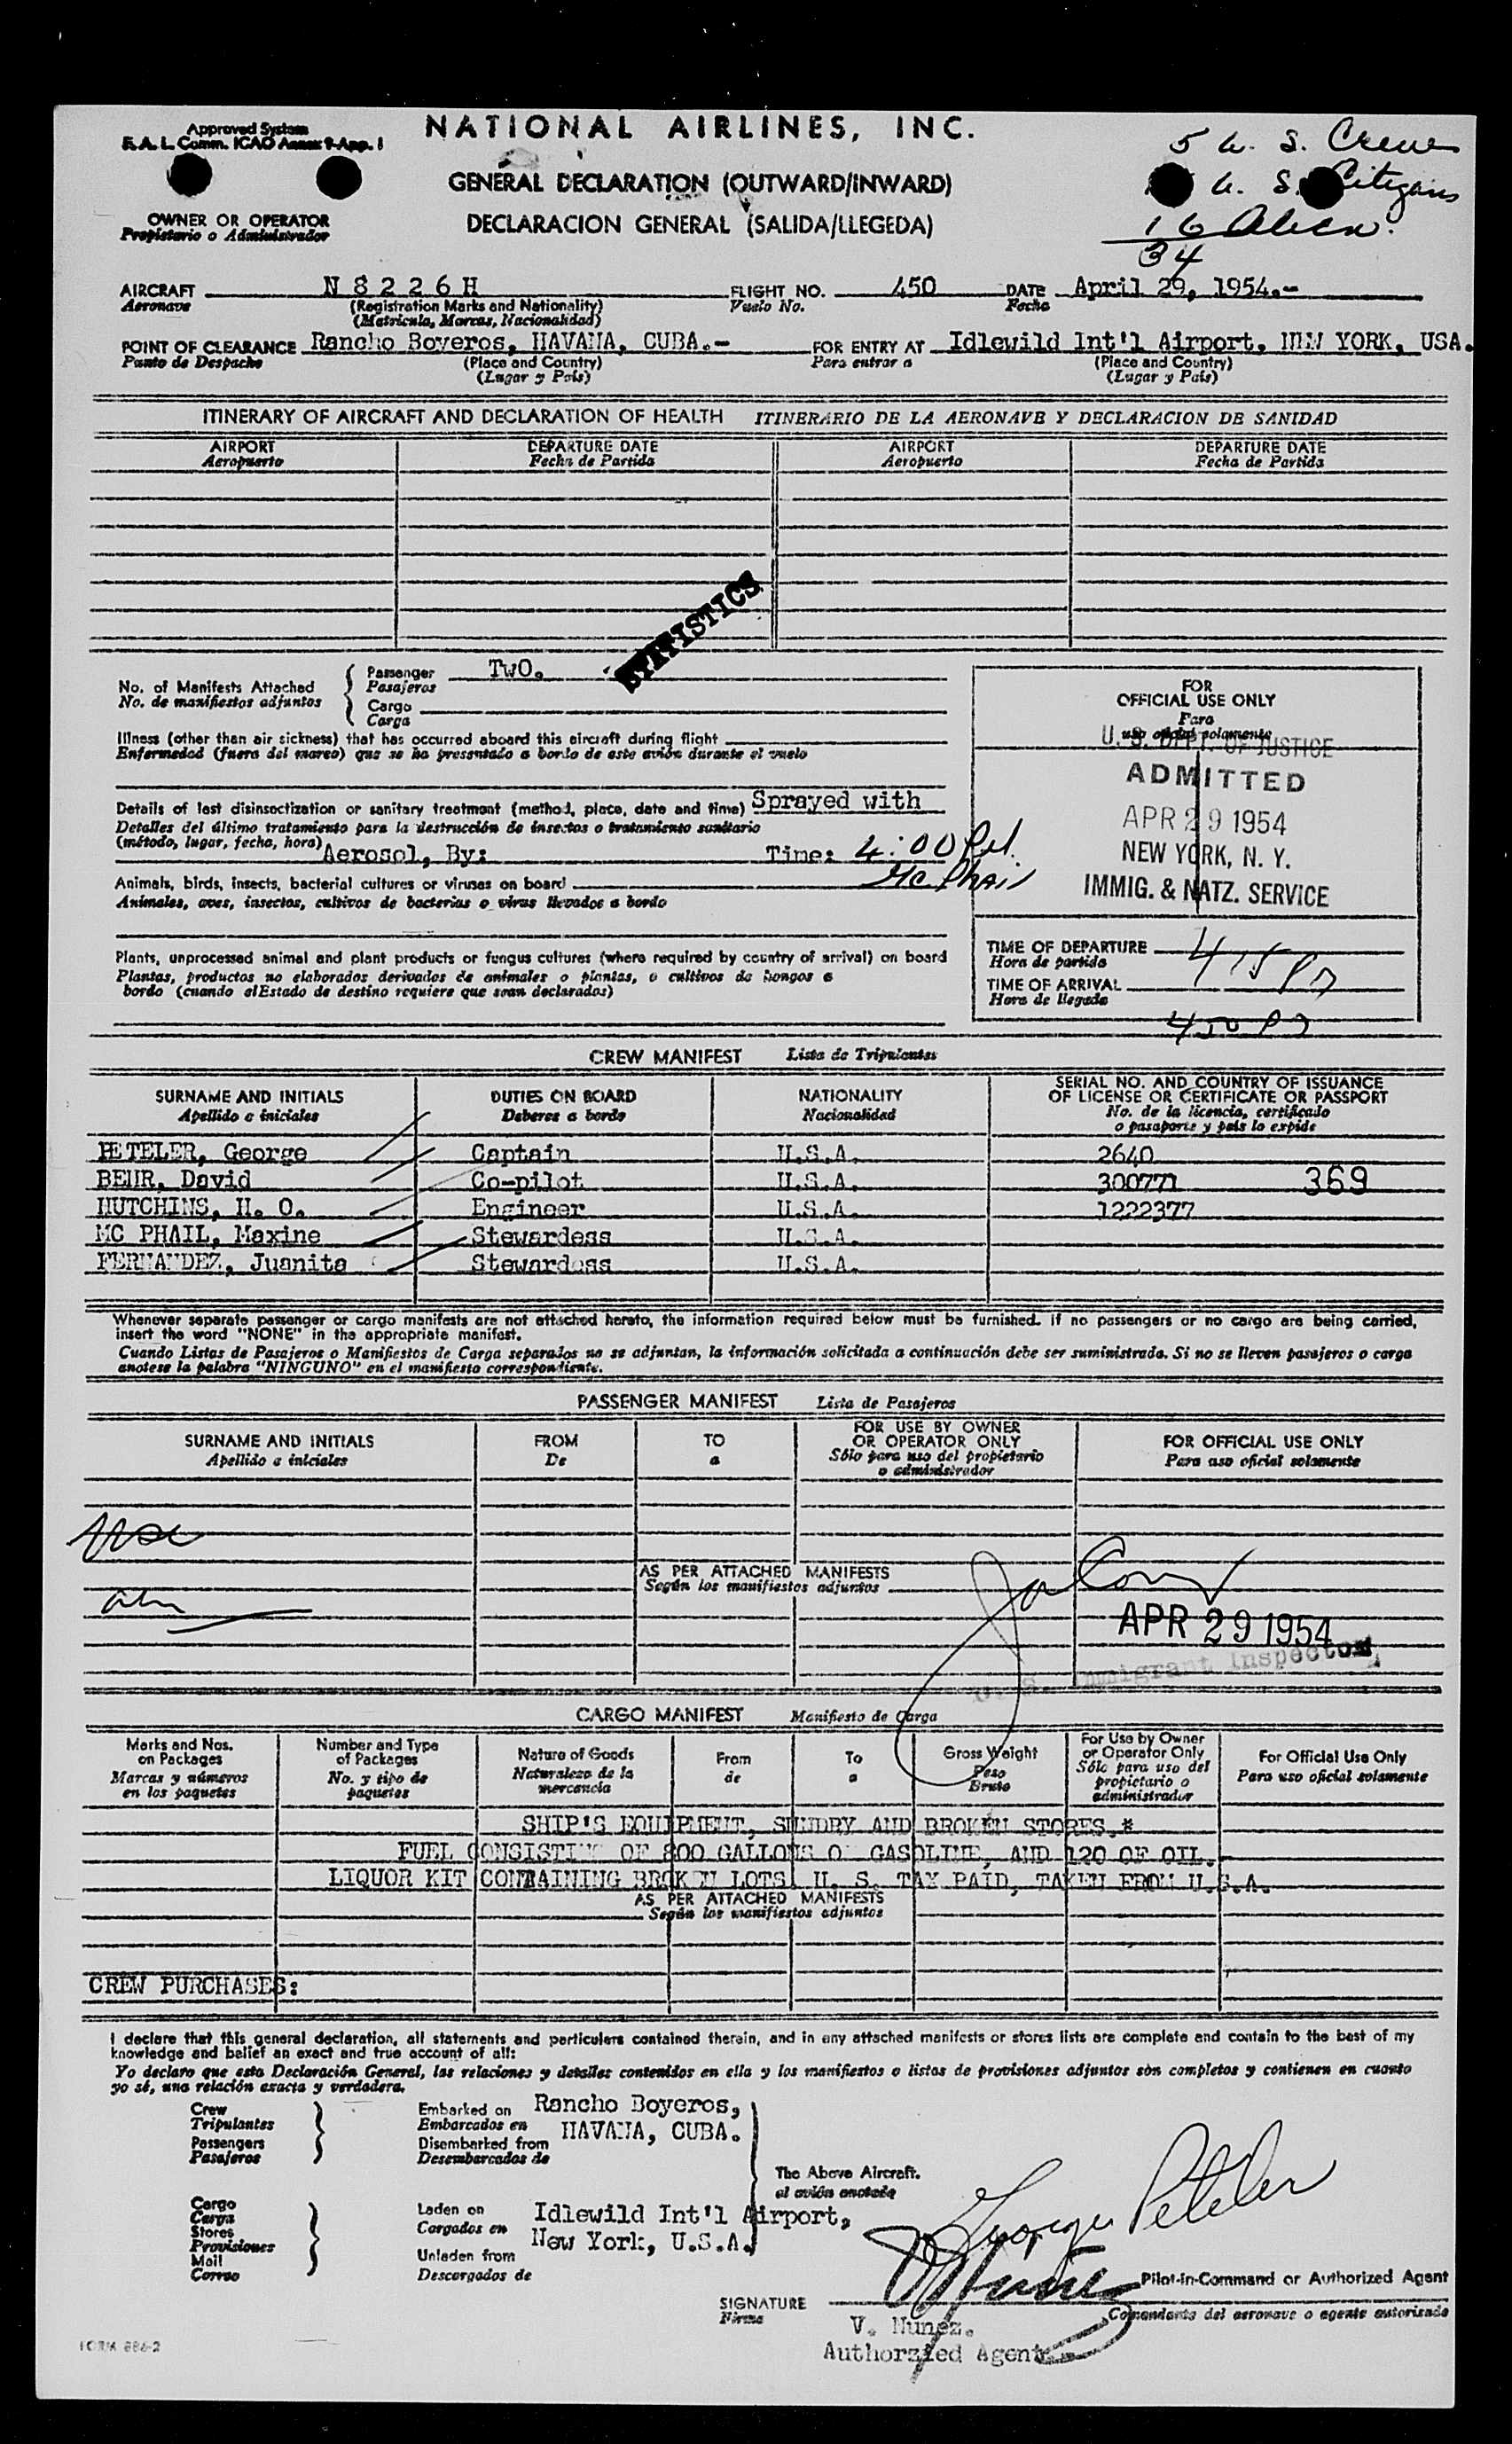 Approved System
F.A.L. Comm. ICAO Annex 9-App. 1
NATIONAL AIRLINES, INC.
5 U. S. Crew
U. S. Citizens
16 Alien.
34
GENERAL DECLARATION (OUTWARD/INWARD)
DECLARACION GENERAL (SALIDA/LLEGEDA)
OWNER OR OPERATOR
Propietario o Administrador
AIRCRAFT N 8 2 2 6 H FLIGHT NO. 450 DATE April 29, 1954.-
Aeronave (Registration Marks and Nationality) Vuelo No. Fecha
(Matricula, Marcas, Nacionalidad)
POINT OF CLEARANCE Rancho Boyeros, HAVANA, CUBA.- FOR ENTRY AT Idlewild Int'l Airport, NEW YORK, USA.
Punto de Despacho (Place and Country) Para entrar a (Place and Country)
(Lugar y País) (Lugar y País)
ITINERARY OF AIRCRAFT AND DECLARATION OF HEALTH ITINERARIO DE LA AERONAVE Y DECLARACION DE SANIDAD
AIRPORT DEPARTURE DATE AIRPORT DEPARTURE DATE
Aeropuerto Fecha de Partida Aeropuerto Fecha de Partida
STATISTICS
No. of Manifests Attached
No. de manifiestos adjuntos
Passenger TwO.
Pasajeros
Cargo
Carga
Illness (other than air sickness) that has occurred aboard this aircraft during flight
Enfermedad (fuera del mareo) que se ha presentado a bordo de este avión durante el vuelo
Details of last disinsectization or sanitary treatment (method, place, date and time) Sprayed with
Detalles del último tratamiento para la destrucción de insectos o tratamiento sanitario
(método, lugar, fecha, hora) Aerosol, By: Time: 4:00 PM
Mc Phail
Animals, birds, insects, bacterial cultures or viruses on board
Animales, aves, insectos, cultivos de bacterias o virus llevados a bordo
Plants, unprocessed animal and plant products or fungus cultures (where required by country of arrival) on board
Plantas, productos no elaborados derivados de animales o plantas, o cultivos de hongos a
bordo (cuando el Estado de destino requiere que sean declarados)
FOR
OFFICIAL USE ONLY
Para
uso oficial solamente
U. S. DEPT. OF JUSTICE
ADMITTED
APR 29 1954
NEW YORK, N. Y.
IMMIG. & NATZ. SERVICE
TIME OF DEPARTURE 415 P
Hora de partida
TIME OF ARRIVAL
Hora de llegada
450 P
CREW MANIFEST Lista de Tripulantes
SURNAME AND INITIALS DUTIES ON BOARD NATIONALITY SERIAL NO. AND COUNTRY OF ISSUANCE
OF LICENSE OR CERTIFICATE OR PASSPORT
Apellido e iniciales Deberes a bordo Nacionalidad No. de la licencia, certificado
o pasaporte y país lo expide
PETELER, George Captain U.S.A. 2640
BEHR, David Co-pilot U.S.A. 300771 369
HUTCHINS, H. O. Engineer U.S.A. 1222377
MC PHAIL, Maxine Stewardess U.S.A.
FERNANDEZ, Juanita Stewardess U.S.A.
Whenever separate passenger or cargo manifests are not attached hereto, the information required below must be furnished. If no passengers or no cargo are being carried,
insert the word "NONE" in the appropriate manifest.
Cuando Listas de Pasajeros o Manifiestos de Carga separados no se adjuntan, la información solicitada a continuación debe ser suministrada. Si no se lleven pasajeros o carga
anotese la palabra "NINGUNO" en el manifiesto correspondiente.
PASSENGER MANIFEST Lista de Pasajeros
SURNAME AND INITIALS FROM TO FOR USE BY OWNER
OR OPERATOR ONLY FOR OFFICIAL USE ONLY
Apellido e iniciales De a Sólo para uso del propietario
o administrador Para uso oficial solamente
AS PER ATTACHED MANIFESTS
Según los manifiestos adjuntos
APR 29 1954
U. S. Immigrant Inspector
CARGO MANIFEST Manifiesto de Carga
Marks and Nos.
on Packages
Marcas y números
en los paquetes
Number and Type
of Packages
No. y tipo de
paquetes
Nature of Goods
Naturaleza de la
mercancia
From
de
To
a
Gross Weight
Peso
Bruto
For Use by Owner
or Operator Only
Sólo para uso del
propietario o
administrador
For Official Use Only
Para uso oficial solamente
SHIP'S EQUIPMENT, SUNDRY AND BROKEN STORES.*
FUEL CONSISTING OF 800 GALLONS OF GASOLINE, AND 120 OF OIL.
LIQUOR KIT CONTAINING BROKEN LOTS U. S. TAX PAID, TAKEN FROM U.S.A.
AS PER ATTACHED MANIFESTS
Según los manifiestos adjuntos
CREW PURCHASES:
I declare that this general declaration, all statements and particulars contained therein, and in any attached manifests or stores lists are complete and contain to the best of my
knowledge and belief an exact and true account of all:
Yo declaro que esta Declaración General, las relaciones y detalles contenidos en ella y los manifiestos o listas de provisiones adjuntos son completos y contienen en cuanto
yo sé, una relación exacta y verdadera.
Crew
Tripulantes
Passengers
Pasajeros
Embarked on Rancho Boyeros,
Embarcados en HAVANA, CUBA.
Disembarked from
Desembarcados de
The Above Aircraft.
al avión anotada
Cargo
Carga
Stores
Provisiones
Mail
Correo
Laden on Idlewild Int'l Airport,
Cargados en New York, U.S.A.
Unladen from
Descargados de
George Peteler
V Nunez
Pilot-in-Command or Authorized Agent
SIGNATURE
Firma
Comandante del aeronave o agente autorizado
V. Nunez.
Authorzied Agent.
FORM 886-2